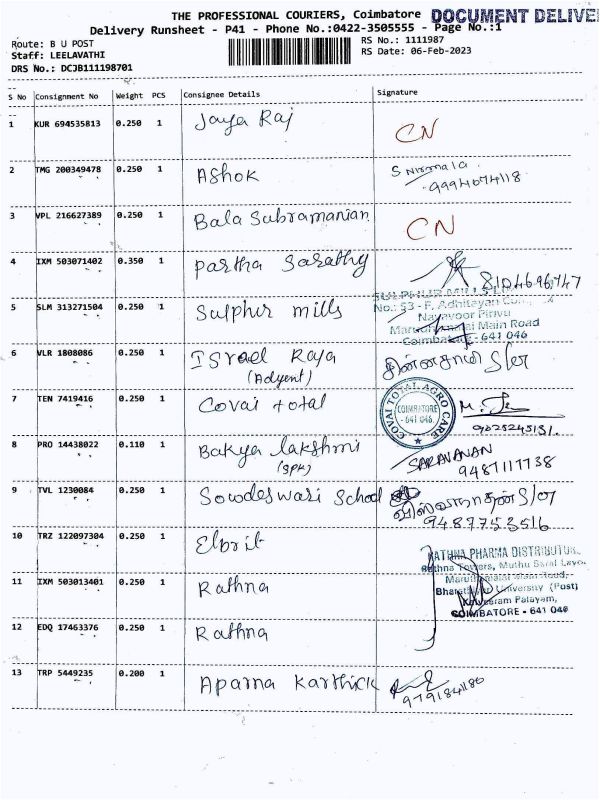 THE PROFESSIONAL COURIERS, Coimbatore DOCUMENT DELIVE
Delivery Runsheet - P41 - Phone No.:0422-3505555 - Page No.:1
Route: B U POST RS No.: 1111987
Staff: LEELAVATHI RS Date: 06-Feb-2023
DRS No.: DCJB111198701
S No Consignment No Weight PCS Consignee Details Signature
1 KUR 694535813 0.250 1 Jaya Raj CN
2 TMG 200349478 0.250 1 Ashok S Nirmala
9994074118
3 VPL 216627389 0.250 1 Bala Subramanian CN
4 IXM 503071402 0.350 1 partha Sarathy 8104696747
5 SLM 313271504 0.250 1 Sulphur mills SULPHUR MILLS LIMITED
No.: 53 - F, Adhitayan
Navavoor Pirivu
Marudhamalai Main Road
Coimbatore - 641 046
6 VLR 1808086 0.250 1 Israel Raja
(Adyent)
7 TEN 7419416 0.250 1 Covai total COVAI TOTAL AGRO CARE
COIMBATORE
- 641 046.
8 PRO 14438022 0.110 1 Bakya lakshmi SARAVANAN
9487117738
9 TVL 1230084 0.250 1 Sowdeswari School
9487753516
10 TRZ 122097304 0.250 1
11 IXM 503013401 0.250 1 Rathna RATHNA PHARMA DISTRIBUTOR
Rathna Towers, Muthu Saral Layo
Marudhamalai Main Road,
Bharathiar University (Post)
Kalveeram Palayam,
COIMBATORE - 641 046
12 EDQ 17463376 0.250 1 Rathna
13 TRP 5449235 0.200 1 Aparna Karthick